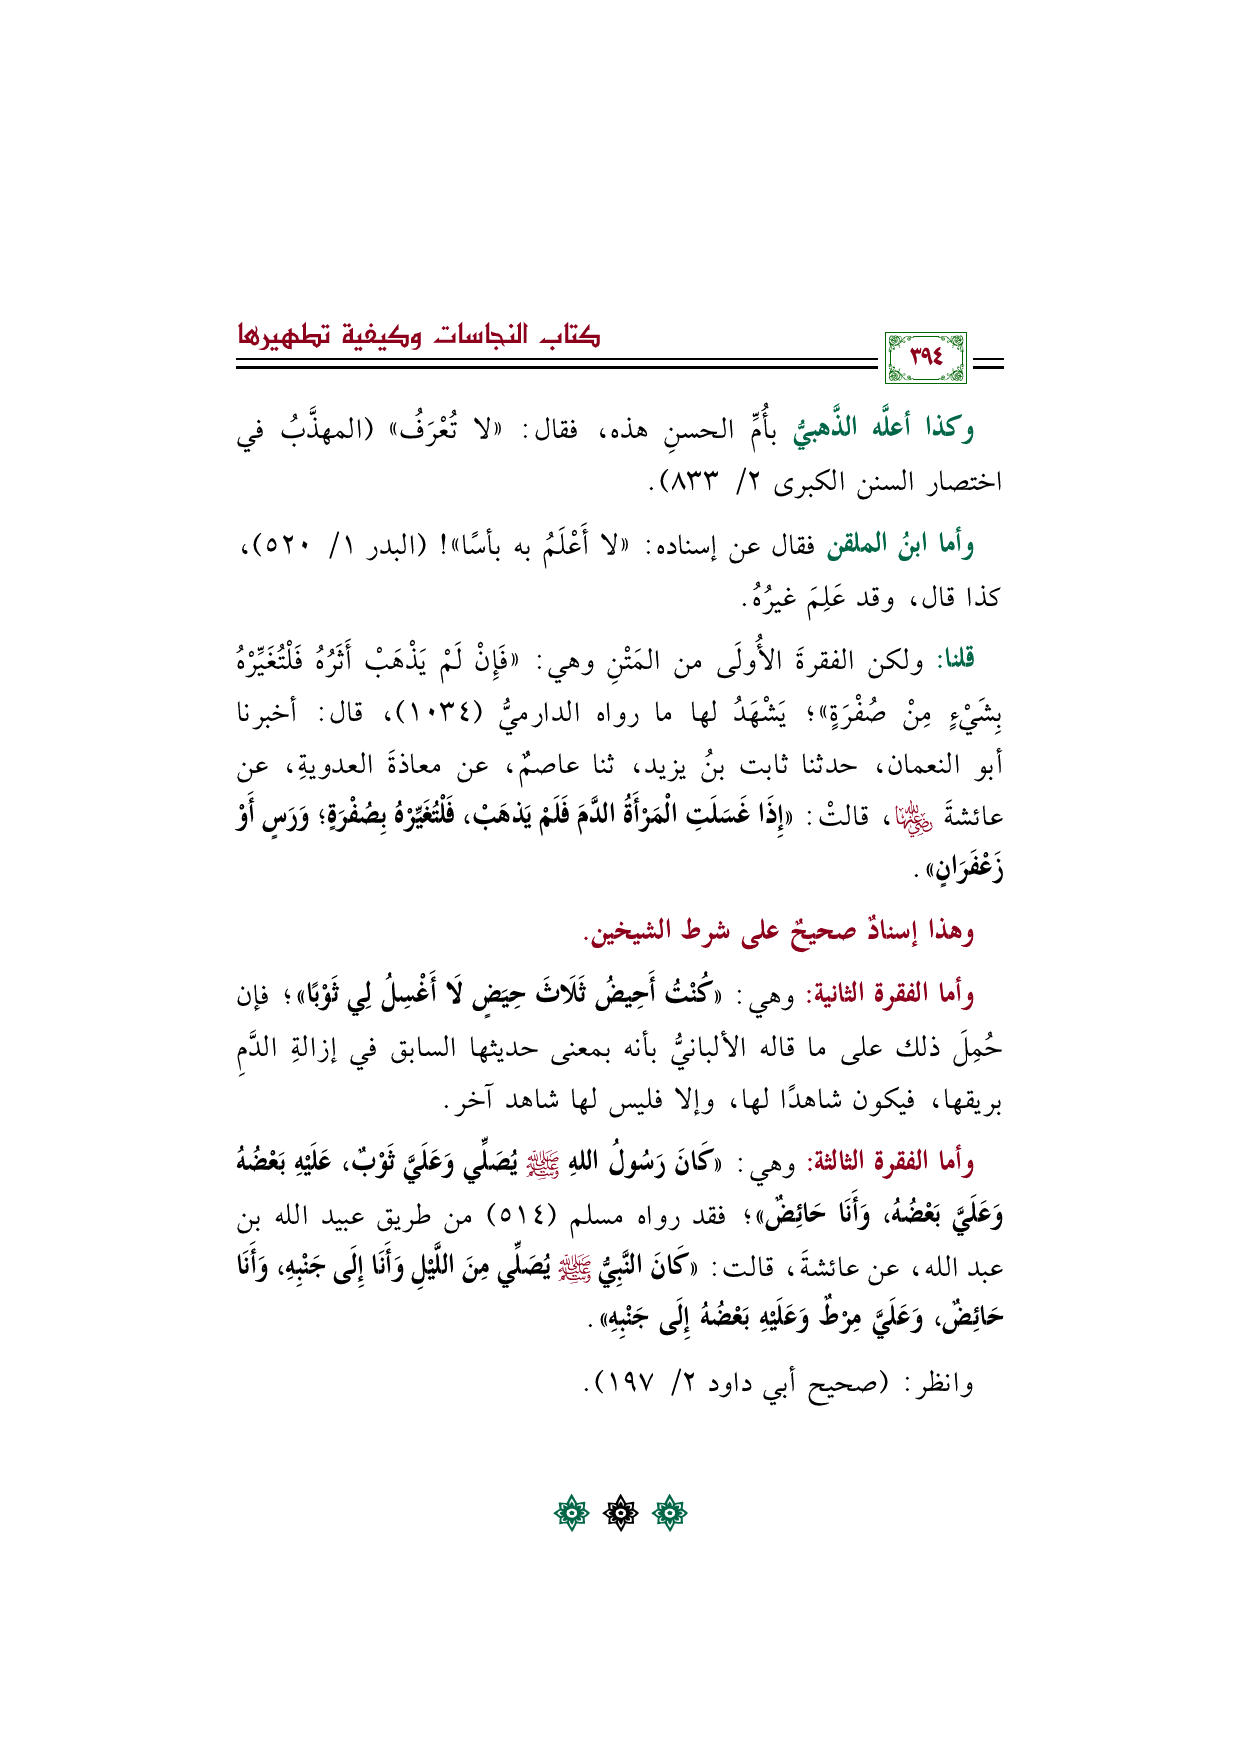 كتاب النجاسات وكيفية تطهيرها
٣٩٤
وكذا أعلَّه الذَّهبيُّ بأُمِّ الحسنِ هذه، فقال: «لا تُعْرَفُ» (المهذَّبُ في
اختصار السنن الكبرى ٢/ ٨٣٣).
وأما ابنُ الملقن فقال عن إسناده: «لا أَعْلَمُ به بأسًا»! (البدر ١/ ٥٢٠)،
كذا قال، وقد عَلِمَ غيرُهُ.
قلنا: ولكن الفقرةَ الأُولَى من المَتْنِ وهي: «فَإِنْ لَمْ يَذْهَبْ أَثَرُهُ فَلْتُغَيِّرْهُ
بِشَيْءٍ مِنْ صُفْرَةٍ»؛ يَشْهَدُ لها ما رواه الدارميُّ (١٠٣٤)، قال: أخبرنا
أبو النعمان، حدثنا ثابت بنُ يزيد، ثنا عاصمٌ، عن معاذةَ العدويةِ، عن
عائشةَ رضي الله عنها، قالتْ: «إِذَا غَسَلَتِ الْمَرْأَةُ الدَّمَ فَلَمْ يَذهَبْ، فَلْتُغَيِّرْهُ بِصُفْرَةٍ؛ وَرَسٍ أَوْ
زَعْفَرَانٍ».
وهذا إسنادٌ صحيحٌ على شرط الشيخين.
وأما الفقرة الثانية: وهي: «كُنْتُ أَحِيضُ ثَلَاثَ حِيَضٍ لَا أَغْسِلُ لِي ثَوْبًا»؛ فإن
حُمِلَ ذلك على ما قاله الألبانيُّ بأنه بمعنى حديثها السابق في إزالةِ الدَّمِ
بريقها، فيكون شاهدًا لها، وإلا فليس لها شاهد آخر.
وأما الفقرة الثالثة: وهي: «كَانَ رَسُولُ اللهِ ﷺ يُصَلِّي وَعَلَيَّ ثَوْبٌ، عَلَيْهِ بَعْضُهُ
وَعَلَيَّ بَعْضُهُ، وَأَنَا حَائِضٌ»؛ فقد رواه مسلم (٥١٤) من طريق عبيد الله بن
عبد الله، عن عائشةَ، قالت: «كَانَ النَّبِيُّ ﷺ يُصَلِّي مِنَ اللَّيْلِ وَأَنَا إِلَى جَنْبِهِ، وَأَنَا
حَائِضٌ، وَعَلَيَّ مِرْطٌ وَعَلَيْهِ بَعْضُهُ إِلَى جَنْبِهِ».
وانظر: (صحيح أبي داود ٢/ ١٩٧).